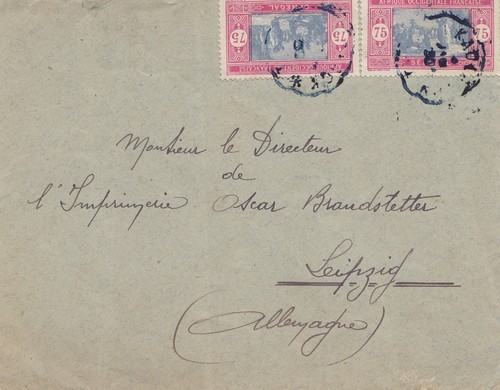 75 SÉNÉGAL 75
AFRIQUE OCCIDENTALE FRANÇAISE
AFRIQUE OCCIDENTALE FRANÇAISE
75 75
Monsieur le Directeur
de
l'Imprimerie Oscar Brandstetter
Leipzig
(Allemagne)